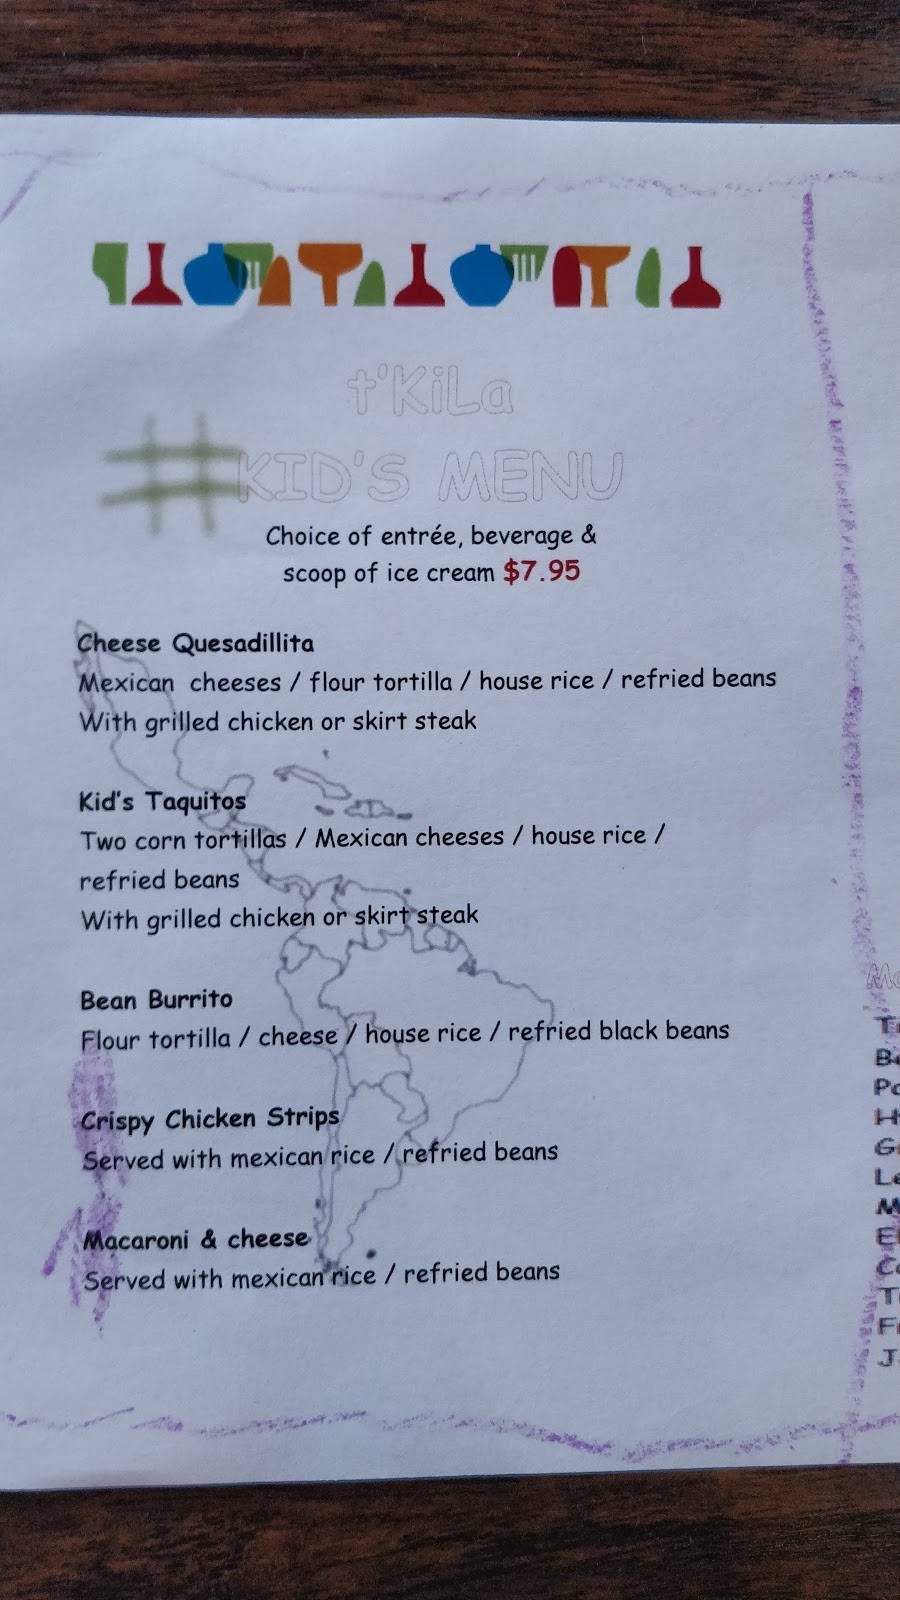 t'KiLa
KID'S MENU
Choice of entrée, beverage &
scoop of ice cream $7.95
Cheese Quesadillita
Mexican cheeses / flour tortilla / house rice / refried beans
With grilled chicken or skirt steak
Kid's Taquitos
Two corn tortillas / Mexican cheeses / house rice /
refried beans
With grilled chicken or skirt steak
Bean Burrito
Flour tortilla / cheese / house rice / refried black beans
Crispy Chicken Strips
Served with mexican rice / refried beans
Macaroni & cheese
Served with mexican rice / refried beans